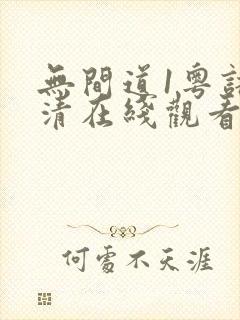 無間道1粵語
清在綫觀看
何處不天涯